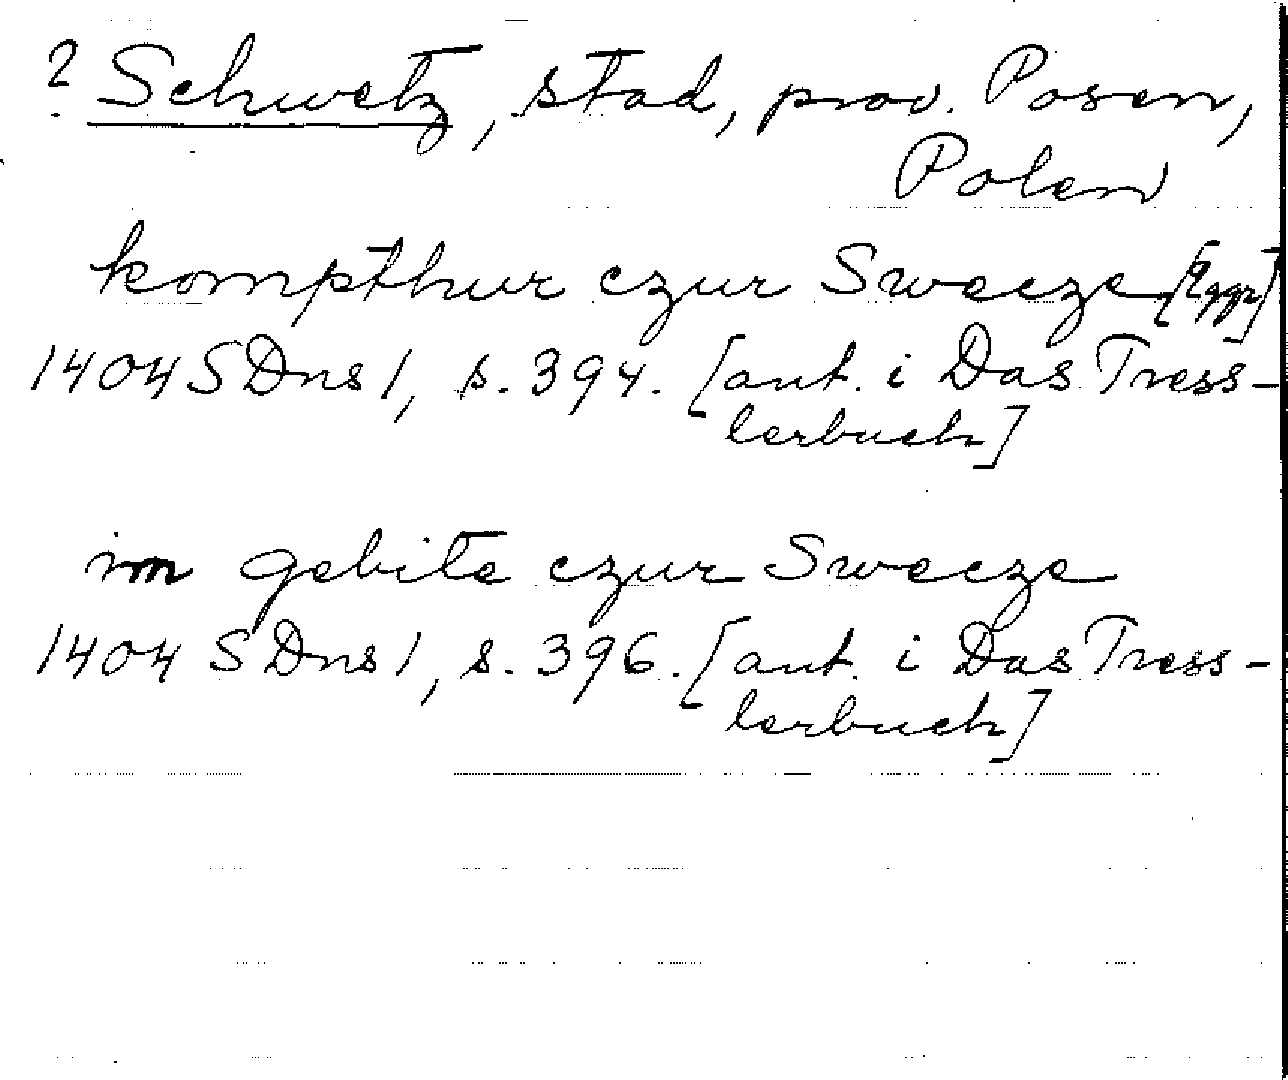 ? Schwetz, stad, prov. Posen,
Polen
kompthur czur Swecze [2ggr]
1404 SDns 1, s. 394. [ant. i Das Tress-
lerbuch]
im gebite czur Swecze
1404 SDns 1, s. 396. [ant. i Das Tress-
lerbuch]